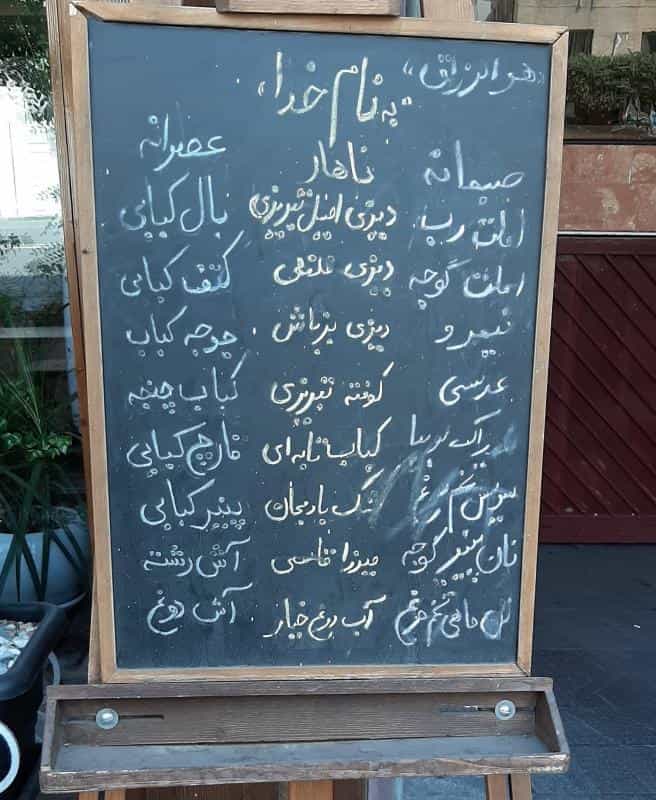 «هو الرزاق»
«به نام خدا»
صبحانه
املت رب
املت گوجه
نیمرو
عدسی
سوسیس تخم مرغ
نان پنیر گوجه
تخم مرغ
ناهار
دیزی اصیل تبریزی
دیزی
دیزی بزباش
کوفته تبریزی
کباب تابه ای
کشک بادمجان
میرزا قاسمی
آب دوغ خیار
عصرانه
بال کبابی
کتف کبابی
جوجه کباب
کباب چنجه
قارچ کبابی
پنیر کبابی
آش رشته
آش دوغ